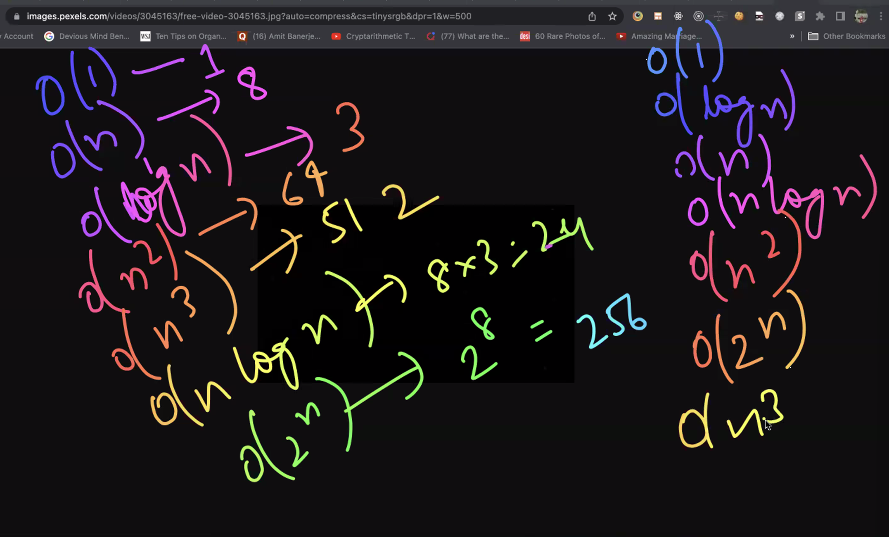 images.pexels.com/videos/3045163/free-video-3045163.jpg?auto=compress&cs=tinysrgb&dpr=1&w=500
Account
Devious Mind Ben...
Ten Tips on Organ...
(16) Amit Banerje...
Cryptarithmetic T...
(77) What are the...
60 Rare Photos of...
Amazing Marriage...
»
Other Bookmarks
O(1) — 1
O(n) → 8
O(log n) → 3
O(n²) → 64
O(n³) → 512
O(n log n) → 8×3=24
O(2ⁿ) → 2⁸ = 256
O(1)
O(log n)
O(n)
O(n log n)
O(n²)
O(2ⁿ)
O(n³